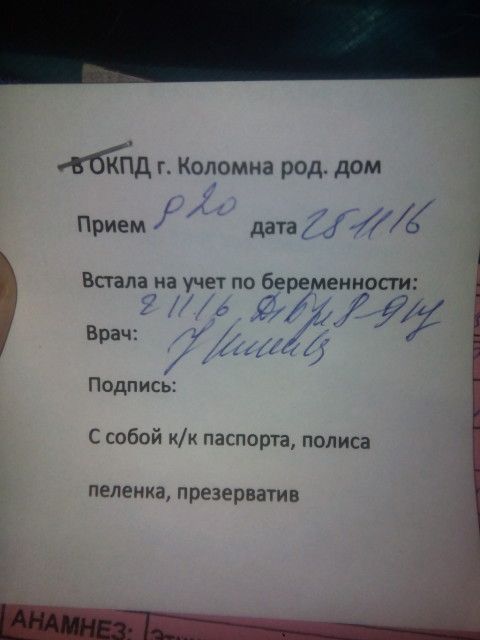 В ОКПД г. Коломна род. дом
Прием 9 20 дата 25 11 16
Встала на учет по беременности:
2 11 16 Ds: Бер 8-9 нед
Врач:
Подпись:
С собой к/к паспорта, полиса
пеленка, презерватив
АНАМНЕЗ: